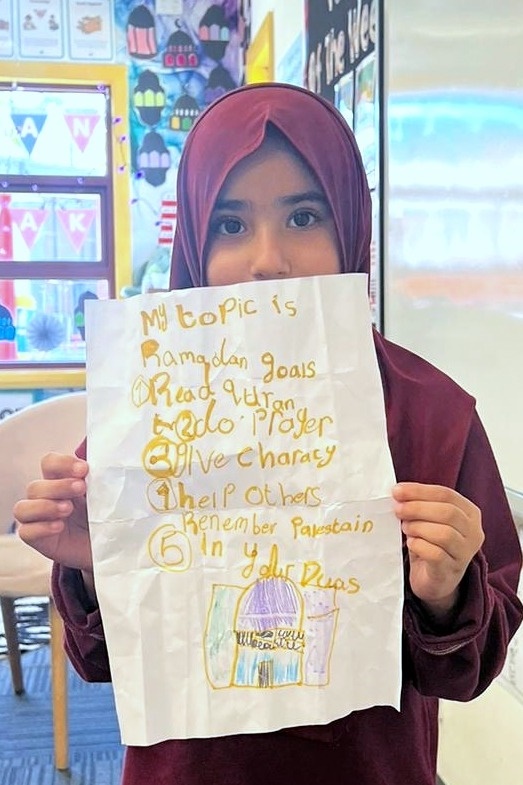 My topic is
Ramadan goals
1 Read quran
2 do Prayer
3 give characy
4 help others
Remember Palestain
5 in your Duas
of the Wee
A N
A K